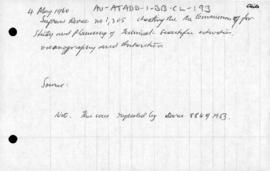 AU-ATADD-1-BB-CL-193
Chile
4 May 1960
Supreme Decree no 1,305 creating the the Commission for
Study and Planning of Terminal scientific
oceanography and Antarctica
Source:
Note. This was repealed by decree 8869 1963.